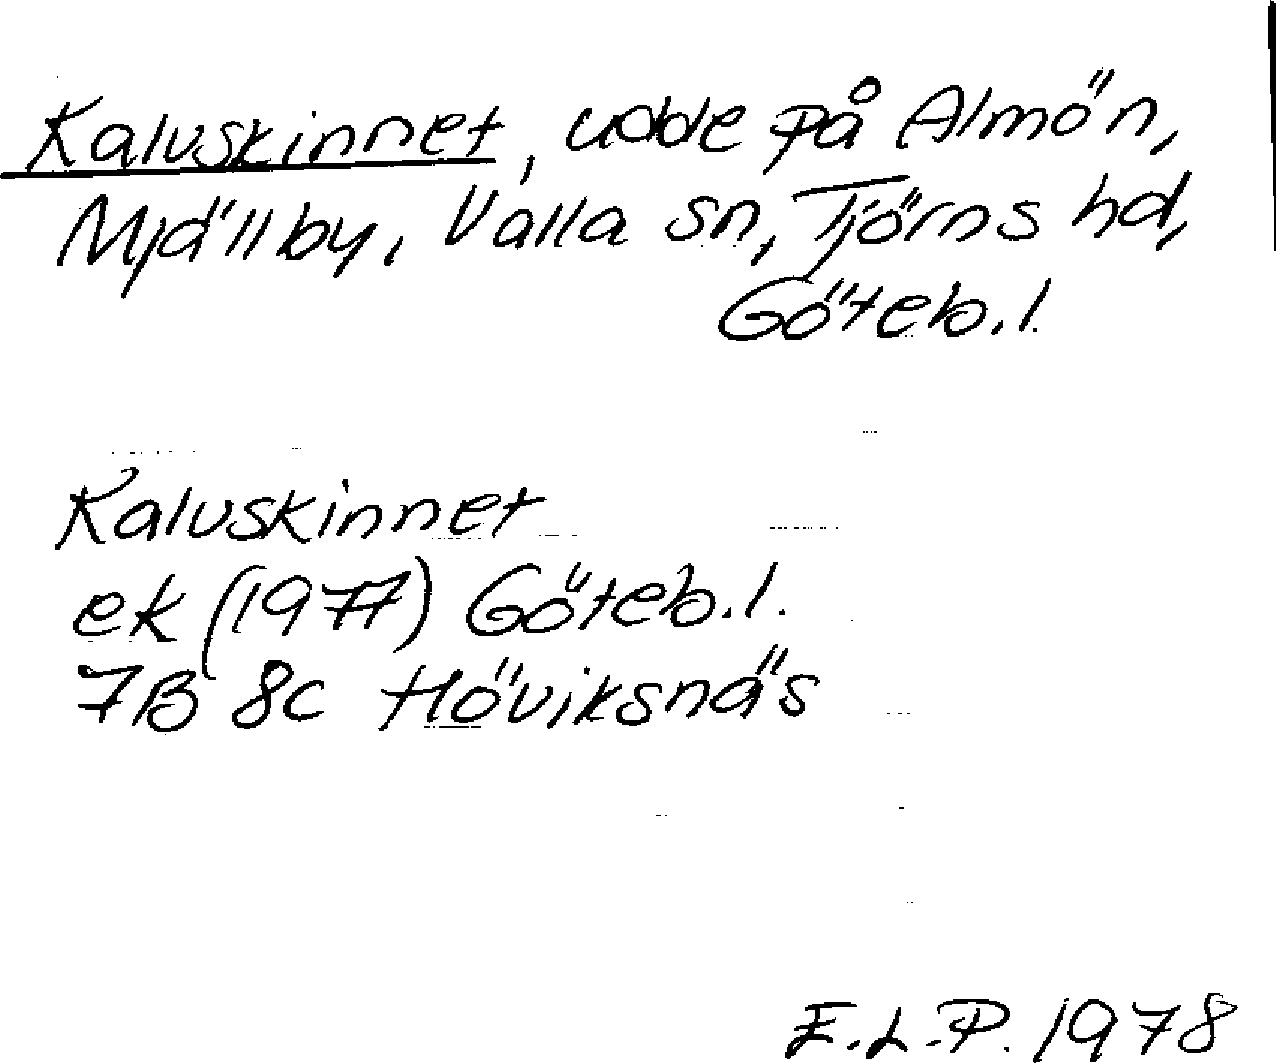 Kalvskinnet, udde på Almön,
Mjällby, Valla sn, Tjörns hd,
Göteb.l.
Kalvskinnet
ek (1977) Göteb.l.
7B 8c Höviksnäs
E.L.P. 1978